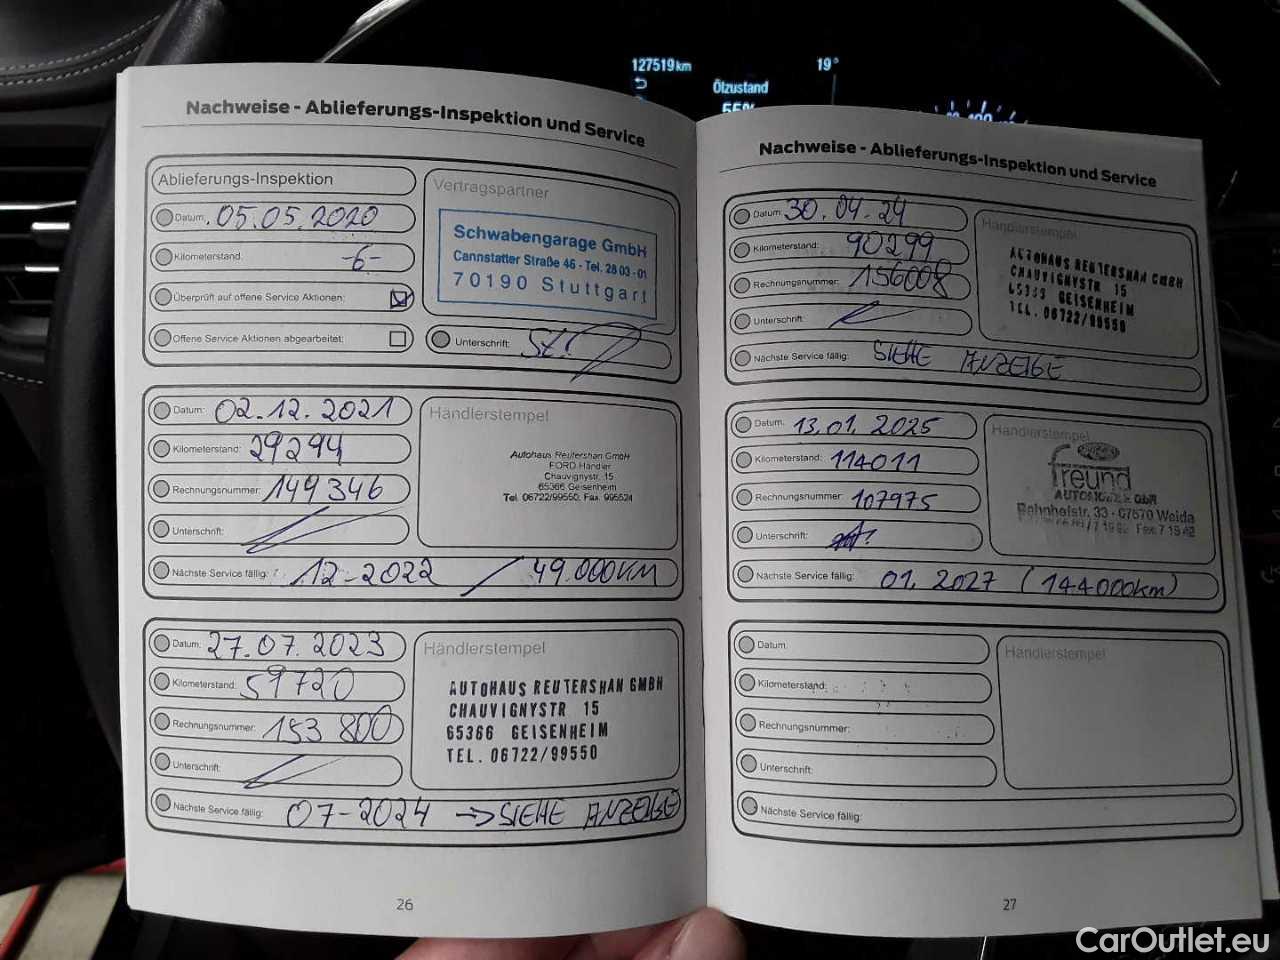 127519 km
19°
Ölzustand
55%
Nachweise - Ablieferungs-Inspektion und Service
Ablieferungs-Inspektion
Datum: 05.05.2020
Kilometerstand: -6-
Überprüft auf offene Service Aktionen:
Offene Service Aktionen abgearbeitet:
Vertragspartner
Schwabengarage GmbH
Cannstatter Straße 46 - Tel. 28 03 - 01
70190 Stuttgart
Unterschrift:
Datum: 02.12.2021
Kilometerstand: 29294
Rechnungsnummer: 149346
Unterschrift:
Händlerstempel
Autohaus Reutershan GmbH
FORD Händler
Chauvignystr. 15
65366 Geisenheim
Tel. 06722/99550, Fax. 995524
Nächste Service fällig: 12-2022 / 49.000KM
Datum: 27.07.2023
Kilometerstand: 59720
Rechnungsnummer: 153 800
Unterschrift:
Händlerstempel
AUTOHAUS REUTERSHAN GMBH
CHAUVIGNYSTR 15
65366 GEISENHEIM
TEL. 06722/99550
Nächste Service fällig: 07-2024 → SIEHE ANZEIGE
26
Nachweise - Ablieferungs-Inspektion und Service
Datum: 30.04.24
Kilometerstand: 90299
Rechnungsnummer: 156008
Unterschrift:
Händlerstempel
AUTOHAUS REUTERSHAN GMBH
CHAUVIGNYSTR 15
65366 GEISENHEIM
TEL. 06722/99550
Nächste Service fällig: SIEHE ANZEIGE
Datum: 13.01.2025
Kilometerstand: 114011
Rechnungsnummer: 107975
Unterschrift:
Händlerstempel
freund
AUTOMOBILE GbR
Bahnhofstr. 33 - 07570 Weida
Fax 7 19 42
Nächste Service fällig: 01.2027 (144000km)
Datum:
Kilometerstand:
Rechnungsnummer:
Unterschrift:
Händlerstempel
Nächste Service fällig:
27
CarOutlet.eu